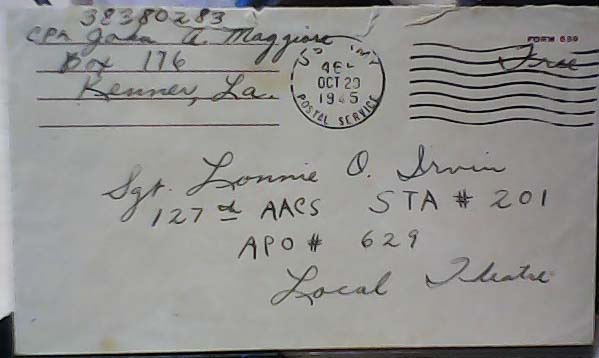 38380283
Cpl John A. Maggiore
Box 176
Kenner, La.
ARMY
OCT 23
1945
POSTAL SERVICE
FORM 689
Free
Sgt. Lonnie O. Irvin
127th AACS STA # 201
APO # 629
Local Theatre